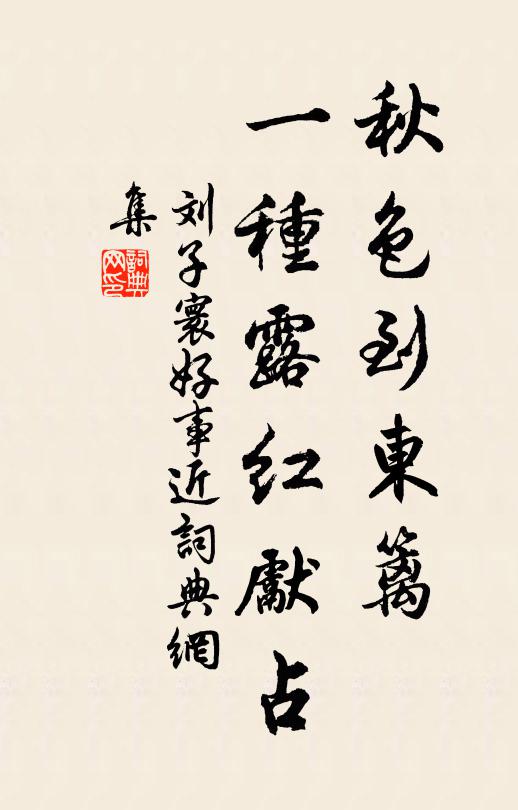 秋色到東籬
一種露紅獻占
刘子寰好事近詞典網
集
詞典网印